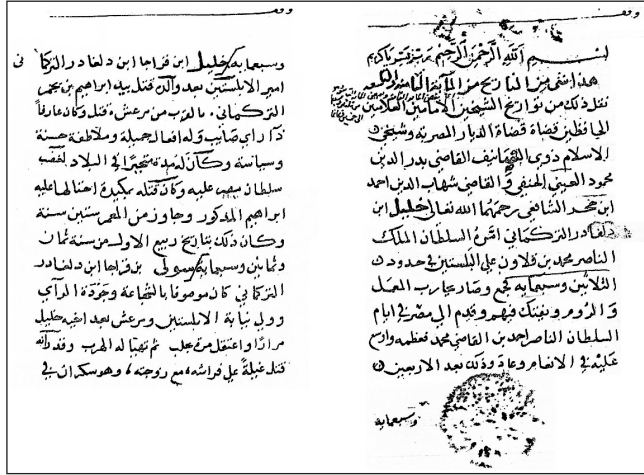 وقف
بسم الله الرحمن الرحيم رب تمم يا كريم
هذا انتقى من التاريخ من المائة الثامنة والتاسعة
نقل ذلك من تواريخ الشيخين الامامين العلامتين
الحافظين قضاة قضاة الديار المصرية وشيخي
الاسلام ذوى التصانيف القاضي بدر الدين
محمود العيني الحنفي و القاضي شهاب الدين احمد
ابن محمد الشافعي رحمهما الله تعالى خليل ابن
دلغادر التركماني امّره السلطان الملك
الناصر محمد بن قلاون علي ابلستين في حدود
الثلاثين وسبعمايه فجمع وصار يحارب المغل
والروم ويفتك فيهم وقدم الي مصر في ايام
السلطان الناصر احمد بن القاضي محمد فعظمه
عليه في الانعام وعاد وذلك بعد الاربعين
وسبعمايه
وقف
وسبعمايه خليل ابن قراجا ابن دلغادر التركما نى
امير الابلستين بعد والده قتل بيد ابراهيم بن يغمر
التركماني بالقرب من مرعش قتل وكان عارفاً
ذا راي صايب وله افعال جميلة وملاطفة حسنة
وسياسة وكان له مدة متحيرا في البلاد لغضب
سلطان مصر عليه وكان قتله بمكيدة احتالها عليه
ابراهيم المذكور وجاوز من العمر ستين سنة
وكان ذلك بتاريخ ربيع الاول من سنة ثمان
وثمانين وسبعمايه سولي بن قراجا ابن دلغادر
التركماني كان موصوفا بالشجاعة وجودة الرآي
وولي نيابة الابلستين ومرعش بعد اخيه خليل
مرارًا واعتقل مرة بحلب ثم تهيا له الهرب وقدر انه
قتل غيلةً علي فراشه، مع روجته، وهو سكران في